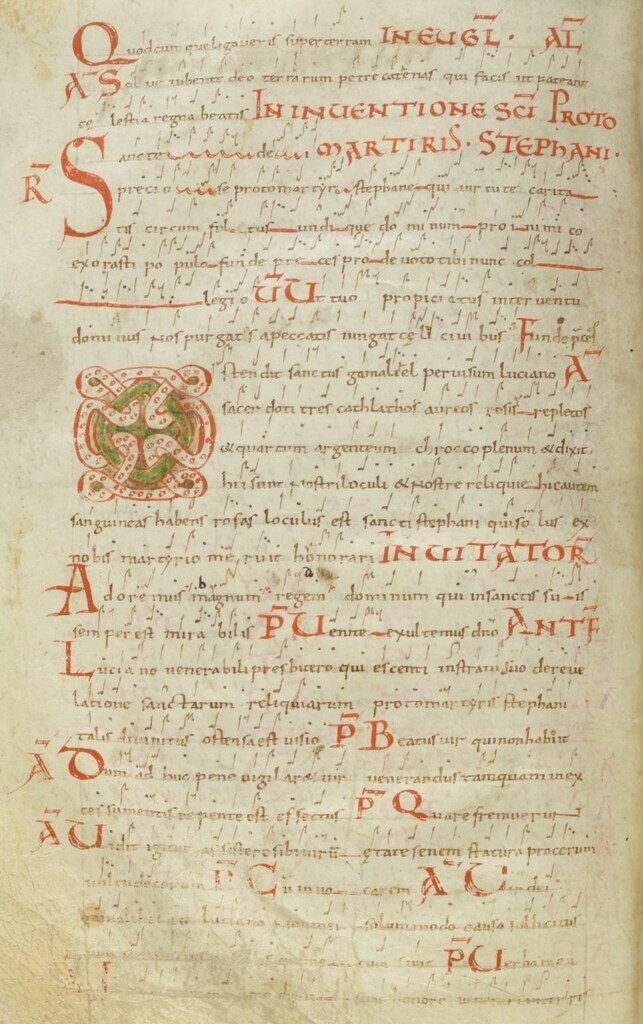 Quodcumque ligaveris super terram IN EUGL. AL
A S Solve iubente deo terrarum petre catenas qui facis ut pateant
cęlestia regna beatis IN INUENTIONE SCI PROTO
Sancte dei MARTIRIS. STEPHANI.
R preciose protomartyr stephane qui virtute carita
tis circum fultus undique dominum pro inimico
exorasti populo funde preces pro devoto tibi nunc col
legio V Ut tuo propiciatus interventu
dominus nos purgatos a peccatis iungat cęli civibus Funde
Ostendit sanctus gamaliel per visum luciano A
sacerdoti tres cathlathos aureos rosis repletos
& quartum argenteum chroco plenum & dixit.
hii sunt nostri loculi & nostre reliquie hic autem
sanguineas habens rosas loculus est sancti stephani qui solus ex
nobis martyrio meruit honorari INUITATOR
Adoremus magnum regem dominum qui in sanctis suis
semper est mirabilis P Uenite exultemus dno ANTF
Luciano venerabili presbitero quiescenti in stratu suo de reve
latione sanctarum reliquiarum protomartyris stephani
talis divinitus ostensa est visio P Beatus vir qui non habiit
A Dum adhuc pene vigilaret vir venerandus tamquam in ex
tes sumentis repente est effectus P Quare fremuerunt
A Uidit igitur assistere sibi virum ętate senem statura procerum
vultu decorum P Cum invocarem A Uir dei
gamalihel luciano nomine solummodo causa sollicitus
P Uerba mea
honore venerari